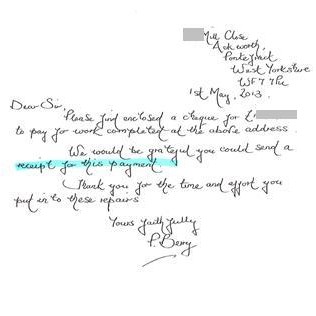 Mill Close
Ackworth,
Pontefract
West Yorkshire
WF7 7PU
1st May, 2013.
Dear Sir,
Please find enclosed a cheque for £
to pay for work completed at the above address.
We would be grateful you could send a
receipt for this payment.
Thank you for the time and effort you
put in to these repairs
Yours faithfully
P. Berry